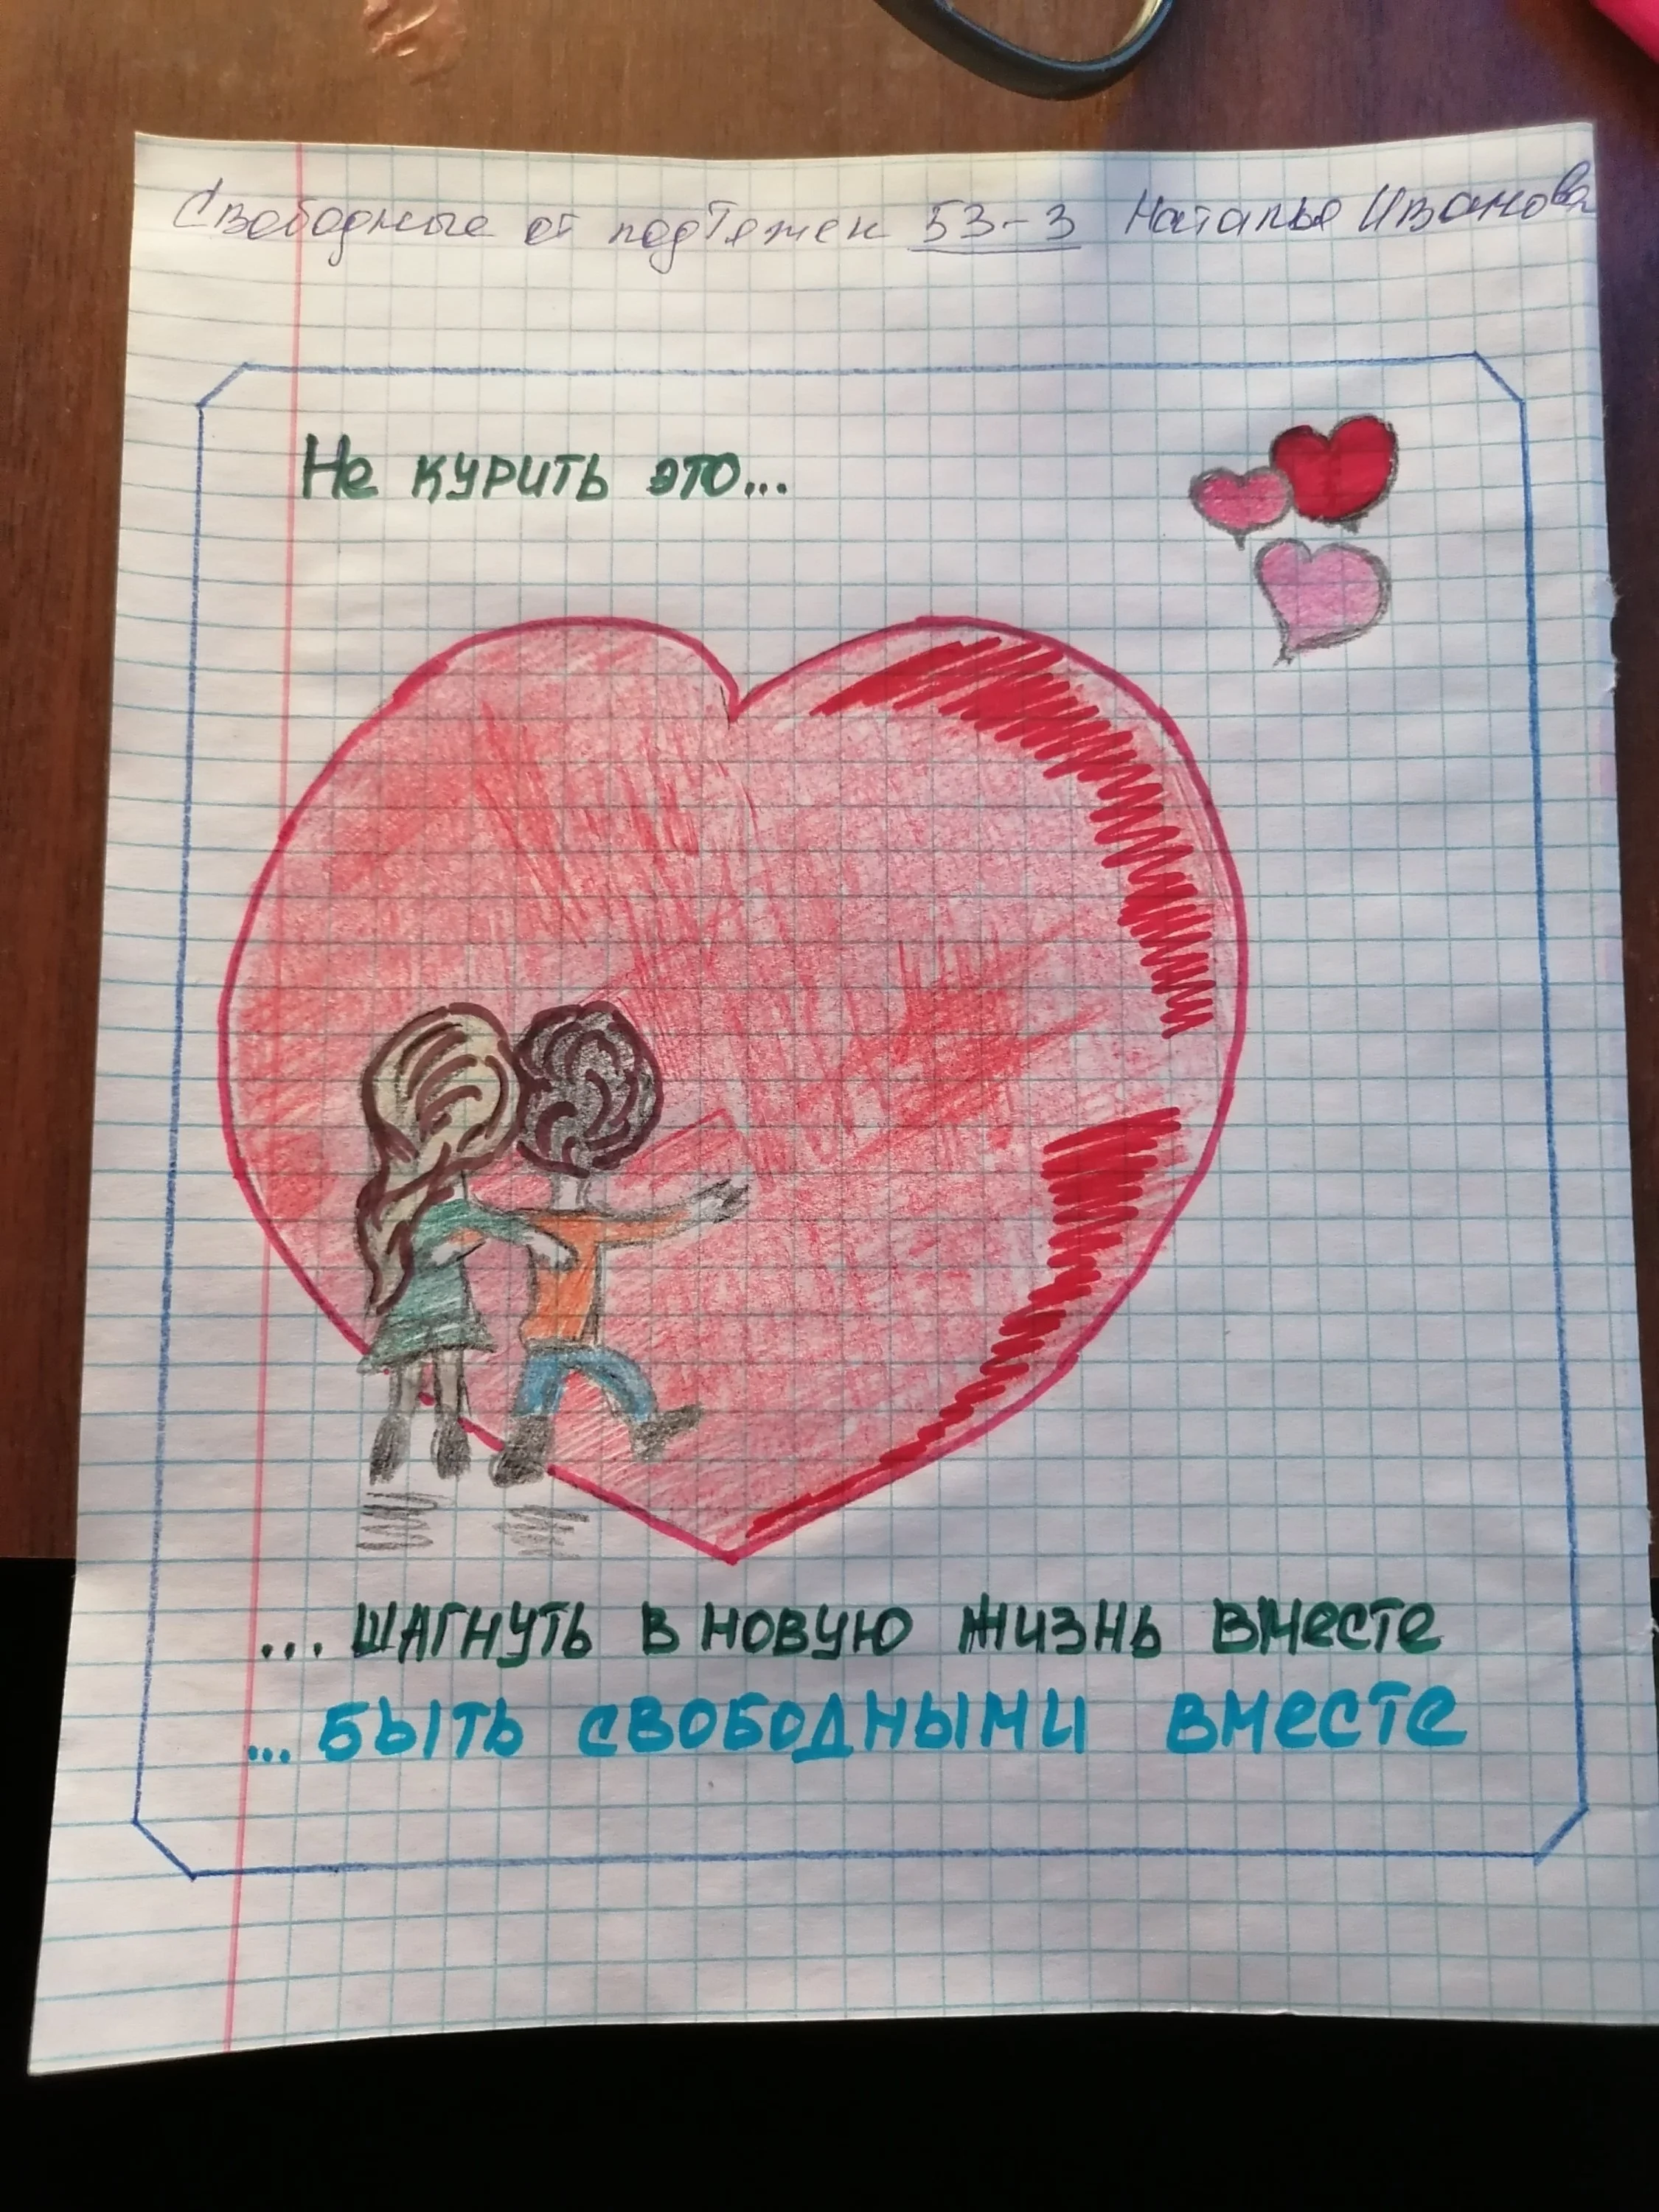 Свободные от подтяжек 53-3 Наталья Иванова
Не курить это...
... шагнуть в новую жизнь вместе
... быть свободными вместе